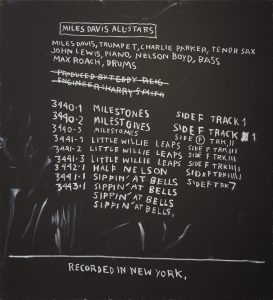 MILES DAVIS ALL-STARS
MILES DAVIS, TRUMPET, CHARLIE PARKER, TENOR SAX
JOHN LEWIS, PIANO, NELSON BOYD, BASS
MAX ROACH, DRUMS
PRODUCED BY TEDDY REIG
ENGINEER HARRY SMITH
3440-1 MILESTONES SIDE F TRACK 1
3440-2 SIDE F TRACK 1
3440-3 MILESTONES SIDE F
3441-1 LITTLE WILLIE LEAPS SIDE F
3441-2 LITTLE WILLIE LEAPS SIDE F
3441-3 LITTLE WILLIE LEAPS SIDE F
HALF NELSON
SIPPIN' AT BELLS
SIPPIN' AT BELLS
SIPPIN' AT BELLS
SIPPIN' AT BELLS,
RECORDED IN NEW YORK,